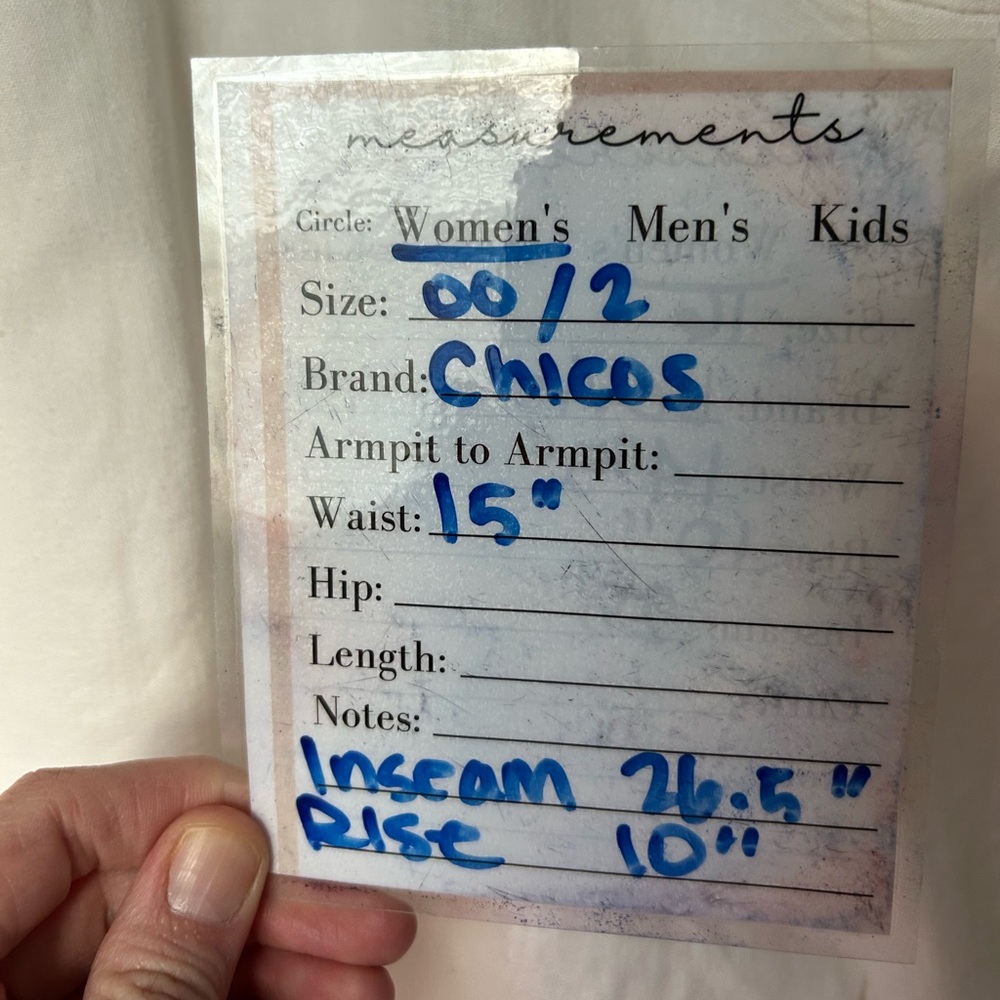 measurements
Circle: Women's Men's Kids
Size: 00/2
Brand: Chicos
Armpit to Armpit:
Waist: 15"
Hip:
Length:
Notes:
Inseam 26.5"
Rise 10"